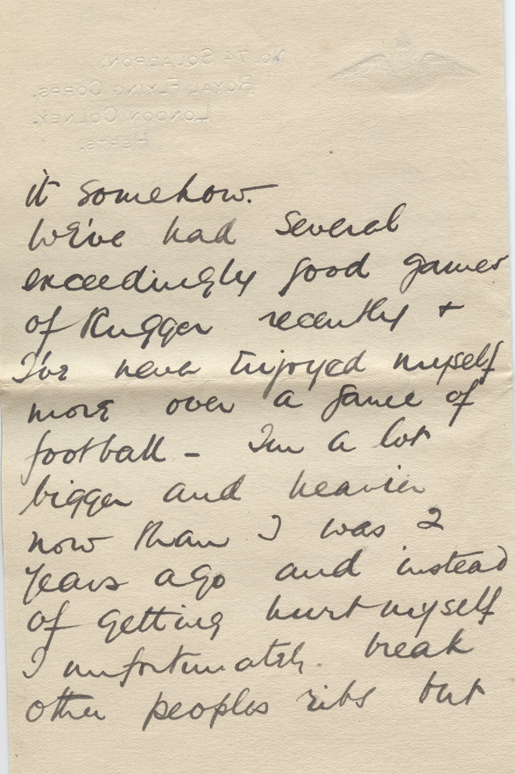 No 74 Squadron.
Royal Flying Corps.
London Colney.
Herts.
it somehow.
We've had several
exceedingly good games
of Rugger recently +
I've never enjoyed myself
more over a game of
football - I'm a lot
bigger and heavier
now than I was 2
years ago and instead
of getting hurt myself
I unfortunately. break
other peoples ribs but